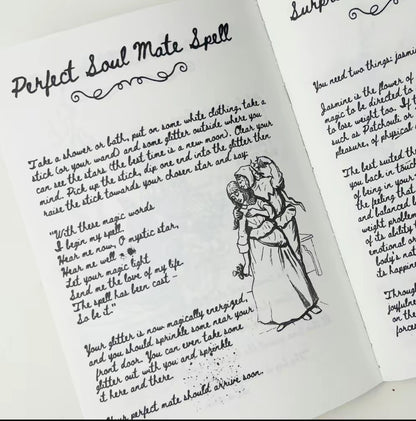 Perfect Soul Mate Spell
Take a shower or bath, put on some white clothing, take a
stick (or your wand) and some glitter outside where you
can see the stars (the best time is a new moon). Clear your
mind. Pick up the stick, dip one end into the glitter then
raise the stick towards your chosen star and say:
"With these magic words
I begin my spell.
Hear me now, O mystic star,
Hear me well.
Let your magic light
Send me the love of my life
The spell has been cast –
So be it."
Your glitter is now magically energized,
and you should sprinkle some near your
front door. You can even take some
glitter out with you and sprinkle
it here and there.
Your perfect mate should arrive soon.
You need two things: jasmin
Jasmine is the flower of
magic to be directed to
to lose weight too. If
such as Patchouli or
pleasures of physical
The best suited the
you back in touch
of being in your
the feeling that
and balanced b
weight proble
of its ability
its emotional
body's nat
its happi
Through
joyfulne
on the
force